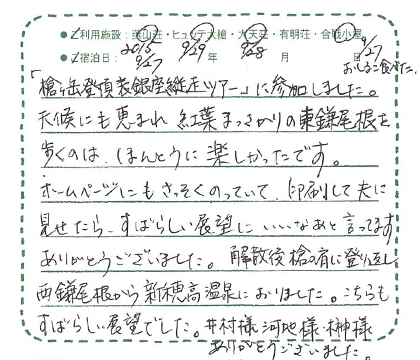 ●ご利用施設：燕山荘・ヒュッテ大槍・大天荘・有明荘・合戦小屋
9/27
おしるこ食べた。
●ご宿泊日：2015 年 月 日
9/27 9/29 9/28
「槍ヶ岳登頂表銀座縦走ツアー」に参加しました。
天候にも恵まれ 紅葉まっさかりの東鎌尾根を
歩くのは、ほんとうに楽しかったです。
ホームページにもさっそくのっていて、印刷して夫に
見せたら、すばらしい展望に いいなあと言ってます
ありがとうございました。解散後槍の肩に登り返し
西鎌尾根から新穂高温泉におりました。こちらも
すばらしい展望でした。井村様 河地様・榊様
ありがとうございました。